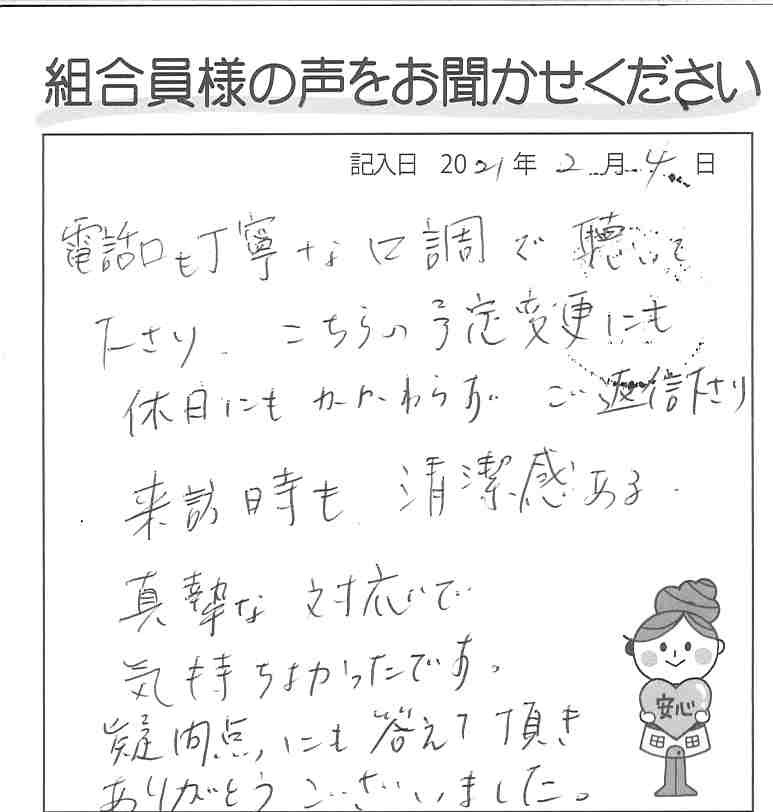 組合員様の声をお聞かせください
記入日 2021年 2月 4日
電話口も丁寧な口調で聴いて
下さり、こちらの予定変更にも
休日にもかかわらず ご返信下さり
来訪時も 清潔感ある
真摯な 対応いで
気持ちよかったです。
疑問点にも答えて頂き
ありがとうございました。
安心